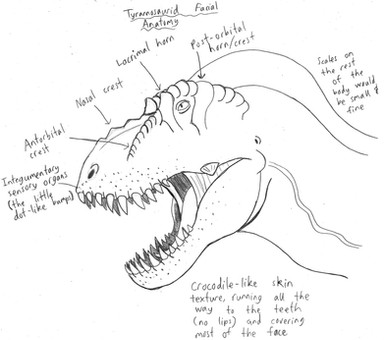 Tyrannosaurid Facial
Anatomy
Lacrimal horn
Post-orbital
horn/crest
Nasal crest
Antorbital
crest
Integumentary
sensory organs
(the little
dot-like bumps)
Scales on
the rest
of the
body would
be small &
fine
Crocodile-like skin
texture, running all the
way to the teeth
(no lips) and covering
most of the face